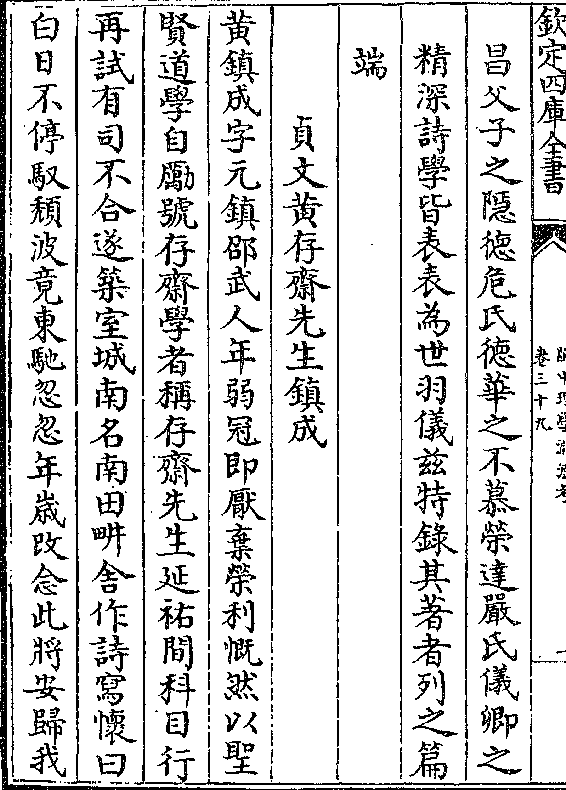 欽定四庫全書
卷三十九
昌父子之隱徳危氏徳華之不慕榮達嚴氏儀卿之
精深詩學皆表表為世羽儀兹特錄其著者列之篇
端
貞文黄存齋先生鎮成
黄鎮成字元鎮邵武人年弱冠即厭棄榮利慨然以聖
賢道學自勵號存齋學者稱存齋先生延祐間科目行
再試有司不合遂築室城南名南田畊舍作詩寫懷曰
白日不停馭頽波竟東馳忽忽年歲改念此將安歸我